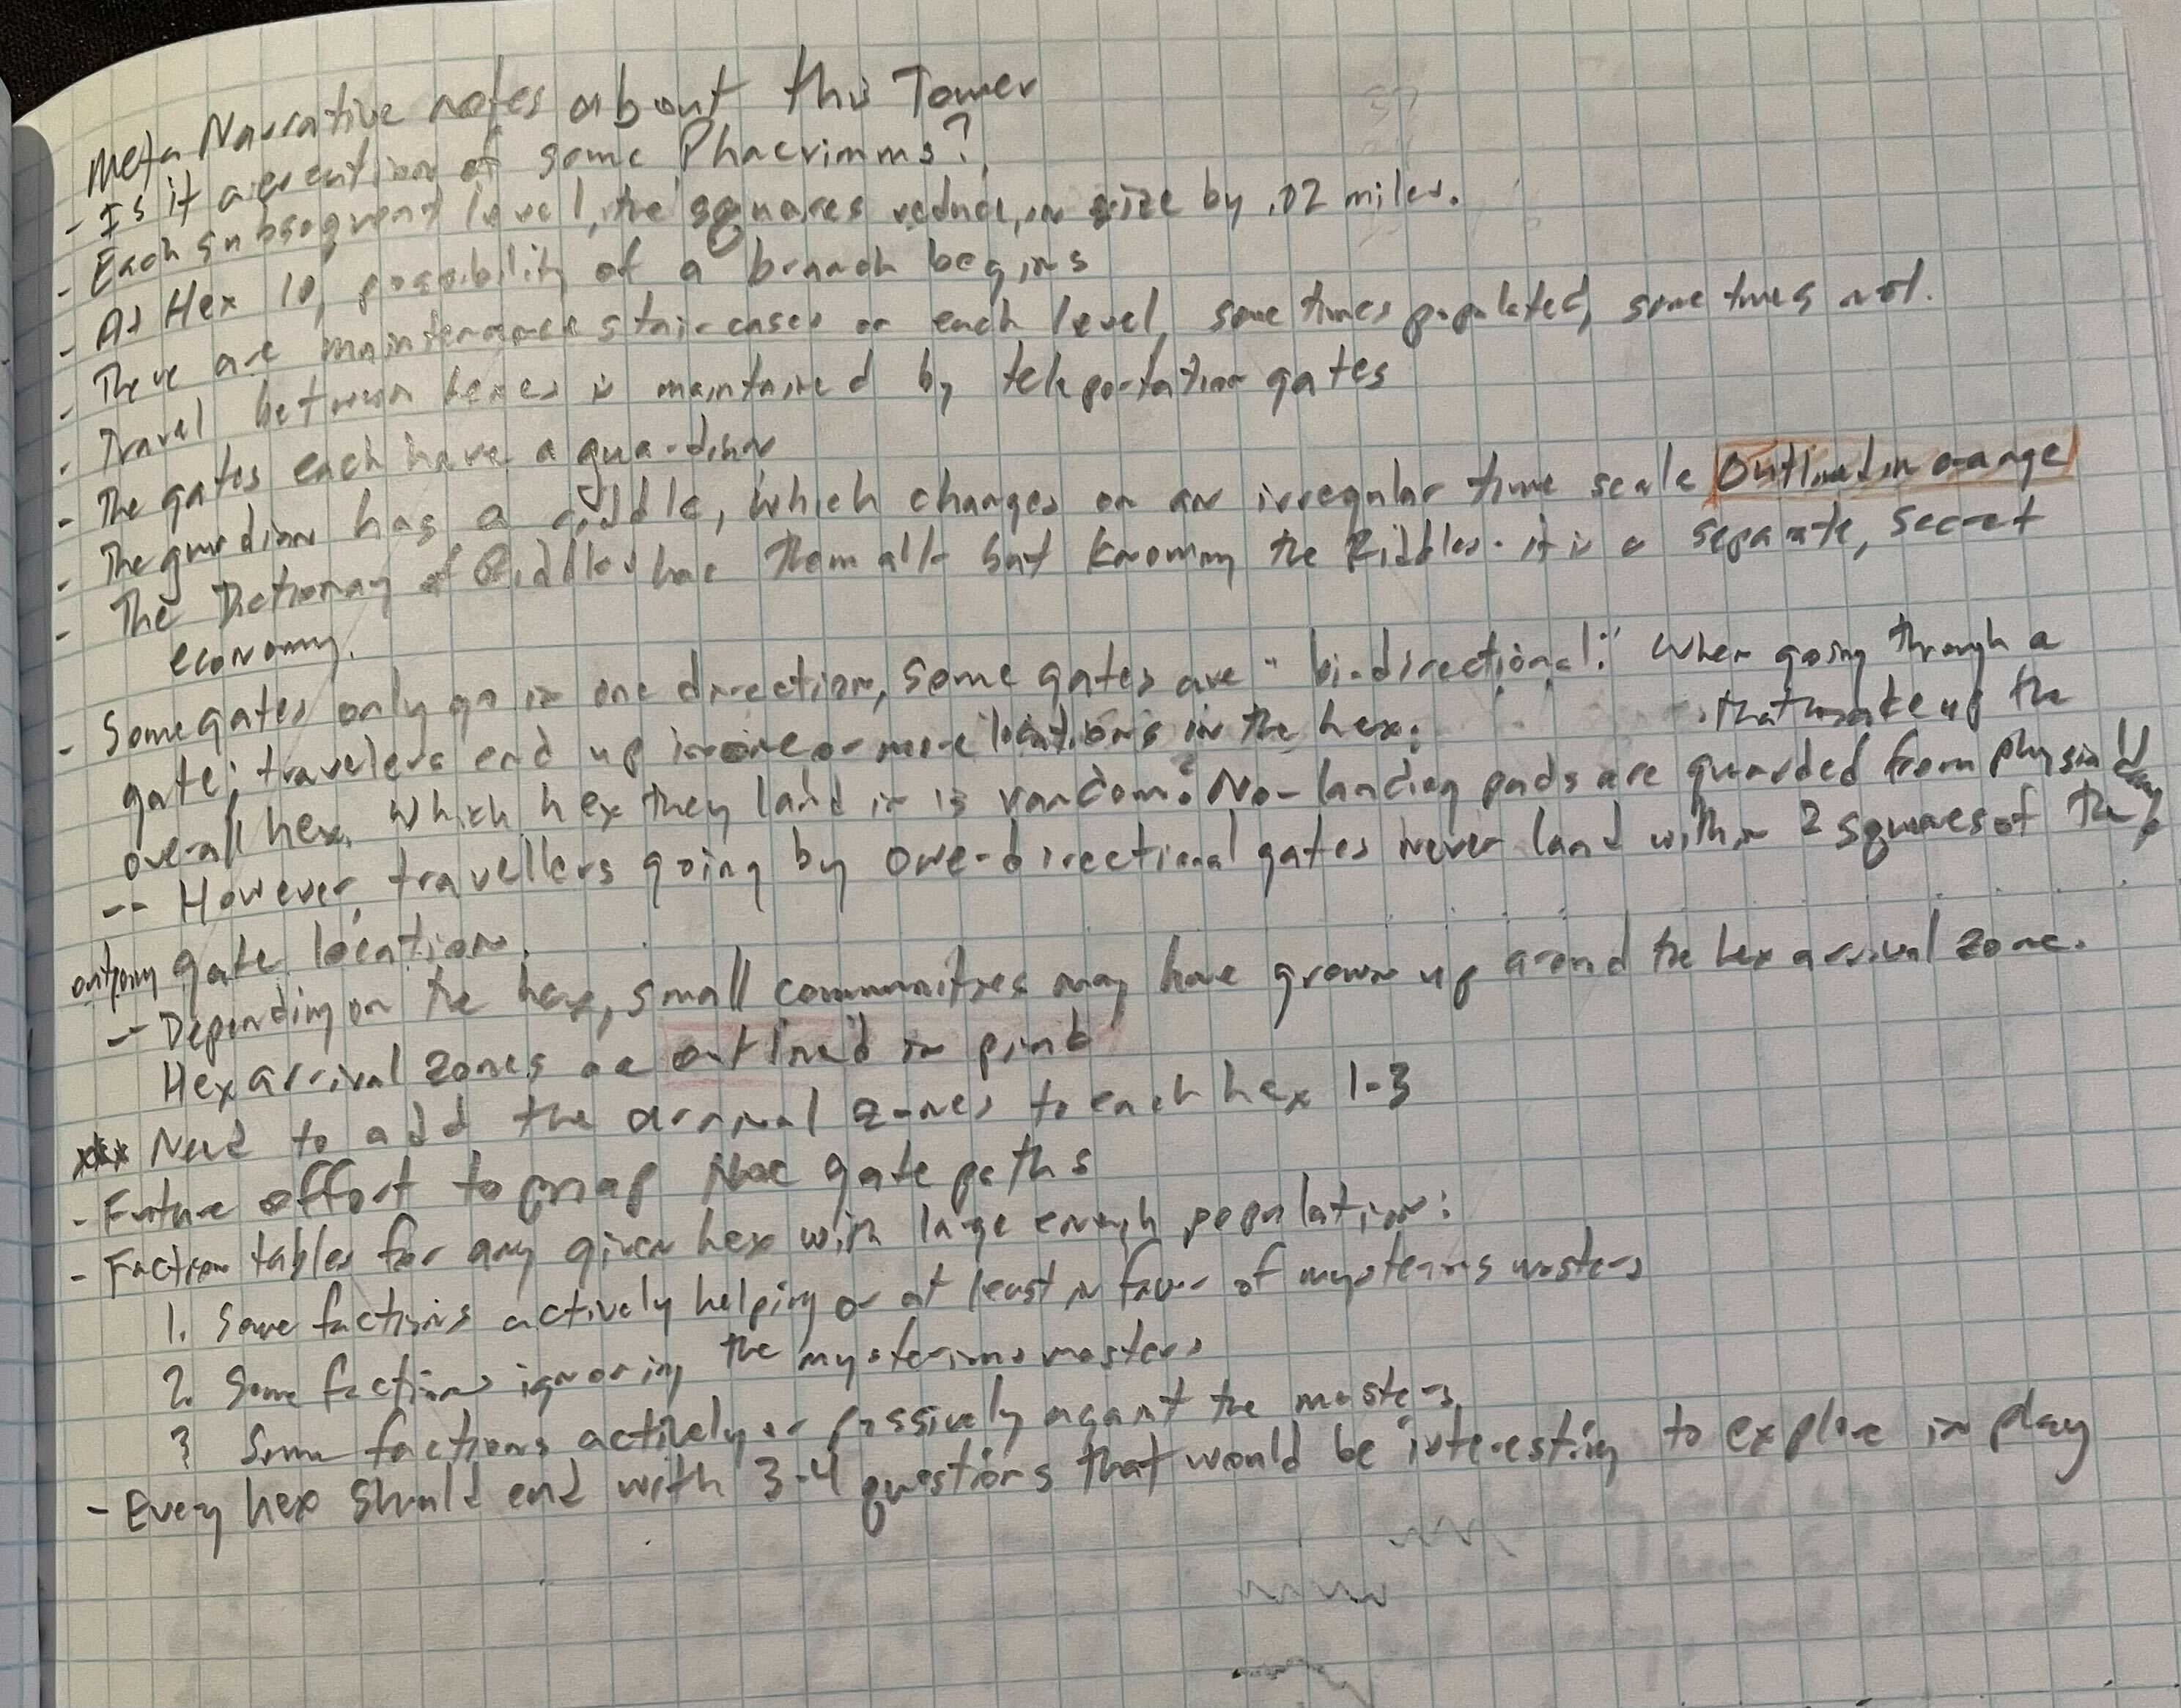 Meta Narrative notes about this Tower
- Is it a creation of some Phaerimms?
- Each subsequent level, the squares reduce, in size by .02 miles.
- At Hex 10, possibility of a branch begins
- There are maintenance staircases on each level, sometimes populated, sometimes not.
- Travel between hexes is maintained by teleportation gates
- The gates each have a guardian
- The guardian has a riddle, which changes on an irregular time scale Outlined in orange
- The Dictionary of Riddles has them all - but knowing the Riddles - it is a separate, secret
economy.
- Some gates only go in one direction, some gates are "bi-directional." When going through a
gate, travelers end up in one or more locations in the hex. that make up the
overall hex. Which hex they land in is random? No - landing pads are guarded from physical
-- However, travellers going by one-directional gates never land within 2 squares of the
outgoing gate location.
-- Depending on the hex, small communities may have grown up around the hex arrival zone.
Hex arrival zones are outlined in pink
*** Need to add the arrival zones to each hex 1-3
- Future effort to map hex gate paths
- Faction tables for any given hex with large enough population:
1. Some factions actively helping or at least in favor of mysterious masters
2. Some factions ignoring the mysterious masters
3 Some factions actively or passively against the masters
- Every hex should end with 3-4 questions that would be interesting to explore in play